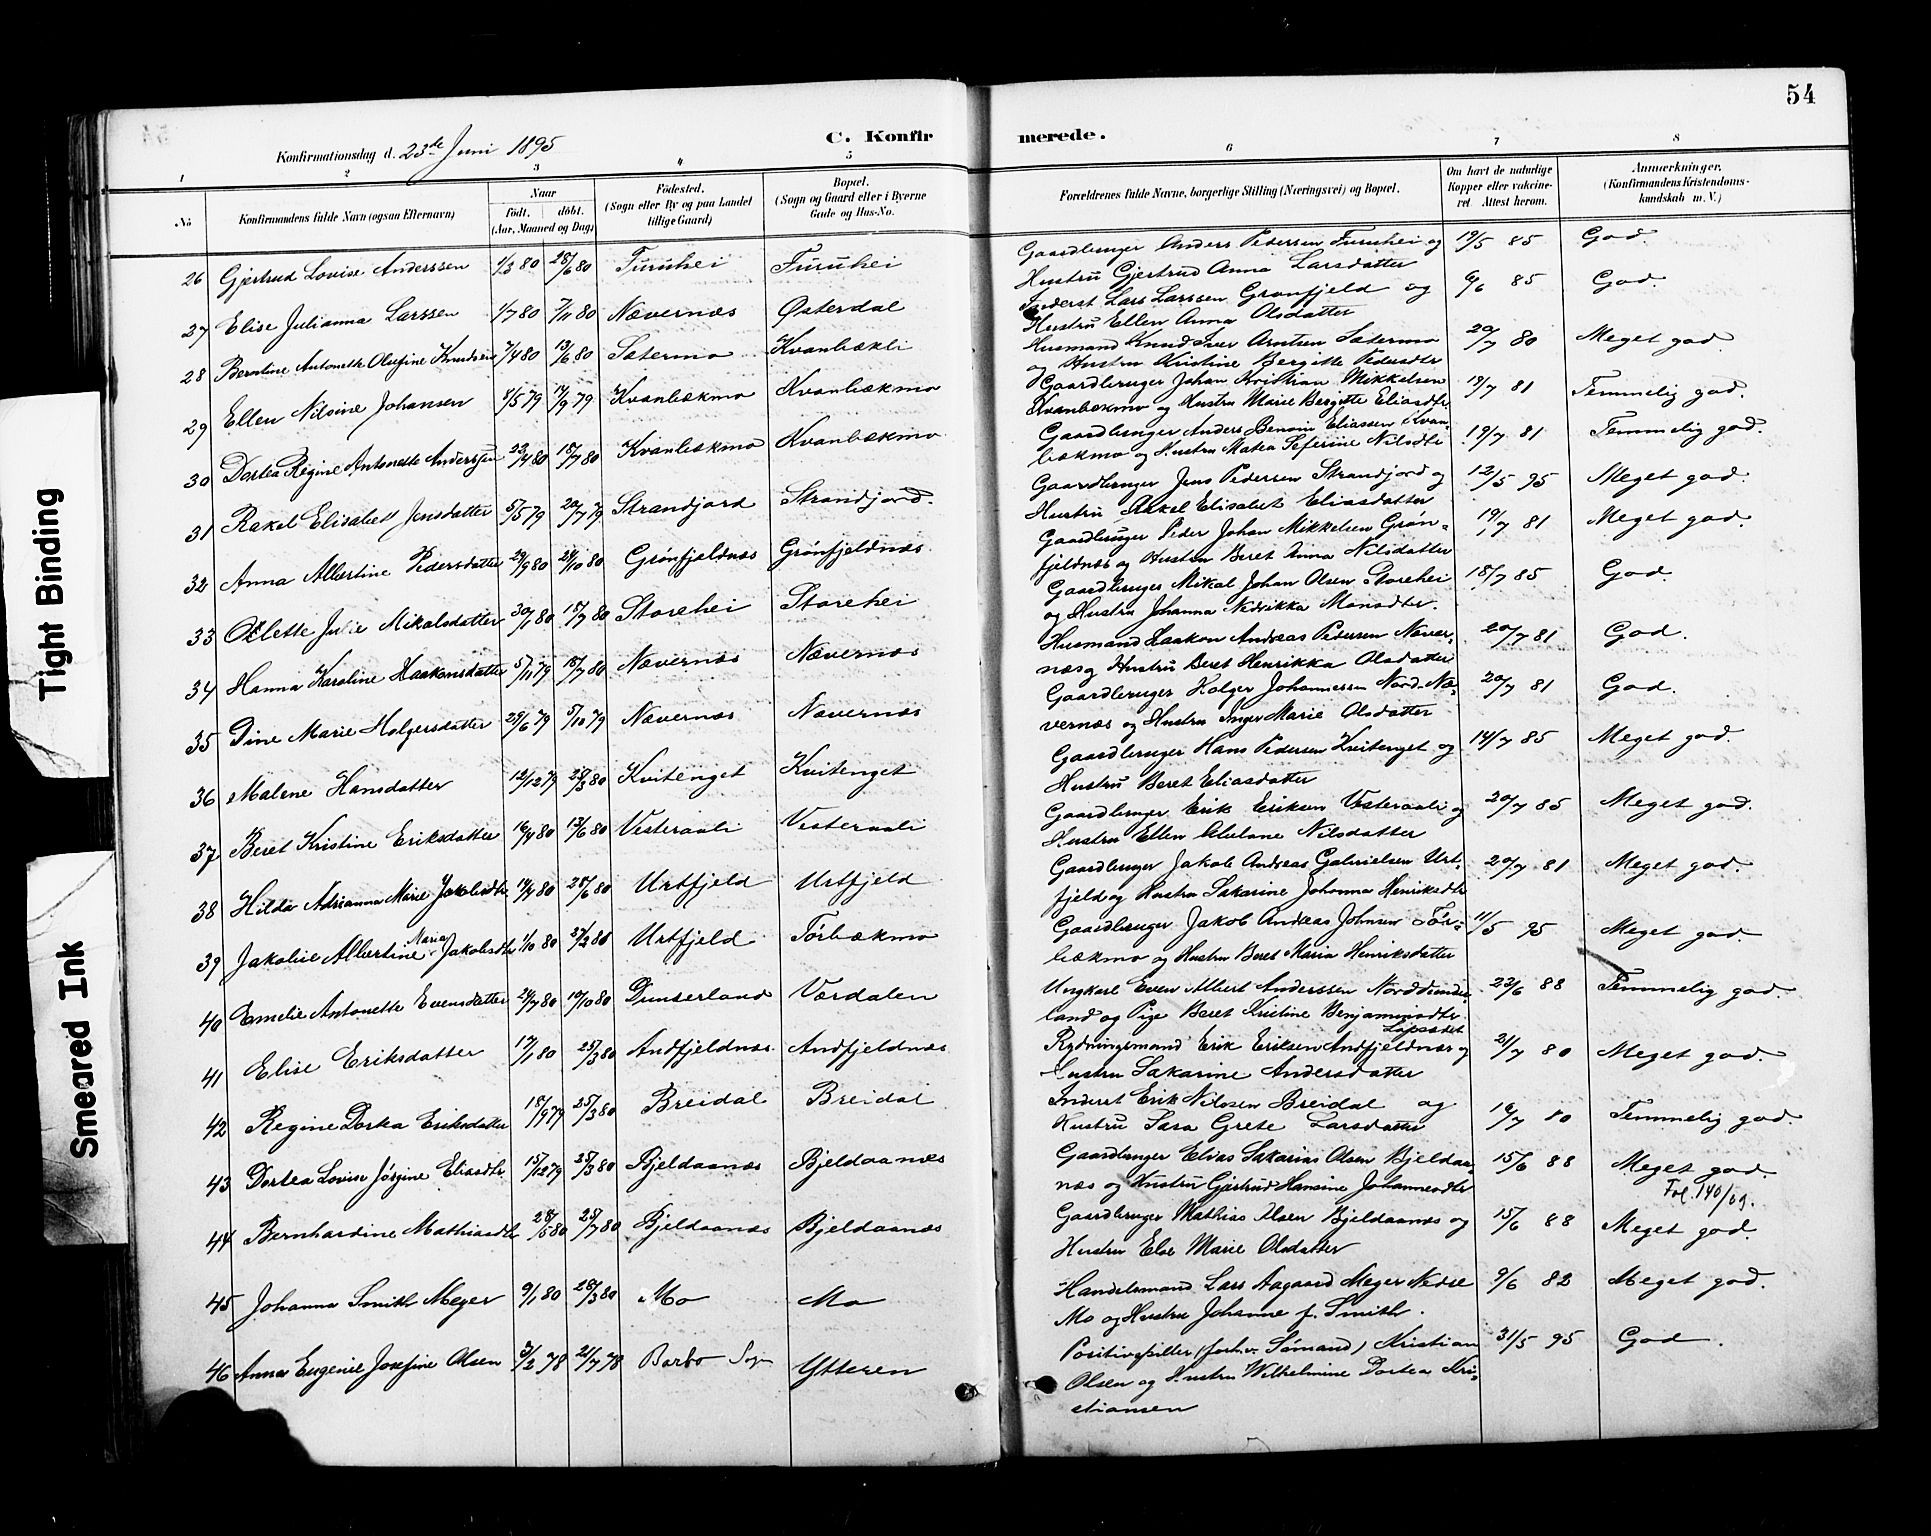 54
C. Konfirmerede.
Konfirmationsdag d. 23de Juni 1895
1 2 3 4 5 6 7 8
No
Konfirmandens fulde Navn (ogsaa Efternavn)
Naar
født. døbt.
(Aar, Maaned og Dag)
Fødested.
(Sogn eller By og paa Landet
tillige Gaard)
Bopæl.
(Sogn og Gaard eller i Byerne
Gade og Hus-No.
Forældrenes fulde Navne, borgerlige Stilling (Næringsvei) og Bopæl.
Om havt de naturlige
Kopper eller vaccine-
ret Attest herom.
Anmærkninger.
(Konfirmandens Kristendoms-
kundskab m. V.)
26 Gjertrud Lovise Anderssen 1/3 80 28/6 80 Furuhei Furuhei
Gaardbruger Anders Pedersen Furuhei og 19/5 85 God.
Hustru Gjertrud Anna Larsdatter
27 Elise Julianna Larssen 1/7 80 7/11 80 Nævernæs Østerdal
Inderst Lars Larssen Grønfjeld og 6/6 85 God.
Hustru Ellen Anna Olsdatter
28 Berntine Antonette Olufine Knudsen 7/4 80 13/6 80 Sætermo Kvanbækli
Husmand Knud Iver Arntsen Sætermo 20/7 80 Meget god.
og Hustru Kristine Bergitte Pedersdtr
29 Ellen Nilsine Johansen 8/5 79 14/9 79 Kvanbækmo Kvanbækmo
Gaardbruger Johan Kristian Mikkelsen 19/7 81 Temmelig god.
Kvanbækmo og Hustru Marie Bergitte Eliasdtr
30 Dortea Regine Antonette Anderssen 23/4 80 18/7 80 Kvanbækmo Kvanbækmo
Gaardbruger Anders Benoni Eliassen Kvan- 19/7 81 Temmelig god.
bækmo og Hustru Matea Seferine Nilsdtr
31 Rakel Elisabett Jensdatter 5/5 79 20/7 79 Strandjord Strandjord.
Gaardbruger Jens Pedersen Strandjord og 12/5 95 Meget god.
Hustru Rakel Elisabet Eliasdatter
32 Anna Albertine Pedersdatter 29/9 80 24/10 80 Grønfjeldnæs Grønfjeldnæs
Gaardbruger Peder Johan Mikkelsen Grøn- 19/7 81 Meget god.
fjeldnæs og Hustru Beret Anna Nilsdatter
33 Ollette Julie Mikalsdatter 30/1 80 18/7 80 Storehei Storehei
Gaardbruger Mikal Johan Olsen Storehei 18/7 85 God.
og Hustru Johanna Medrikka Monsdtr.
34 Hanna Karoline Haakonsdatter 5/11 79 18/7 80 Nævernæs Nævernæs
Husmand Haakon Andreas Pedersen Næver- 20/7 81 God.
næs og Hustru Beret Henrikka Olsdatter
35 Dine Marie Holgersdatter 29/6 79 5/10 79 Nævernæs Nævernæs
Gaardbruger Holger Johannessen Nord-Næ- 20/7 81 God.
vernæs og Hustru Inger Marie Olsdatter
36 Malene Hansdatter 12/12 79 28/3 80 Kvitenget Kvitenget
Gaardbruger Hans Pedersen Kvitenget og 14/7 85 Meget god.
Hustru Beret Eliasdatter
37 Beret Kristine Eriksdatter 16/4 80 13/6 80 Vesteraali Vesteraali
Gaardbruger Erik Eriksen Vesteraali og 20/7 85 Meget god.
Hustru Ellen Nilsdatter
38 Hilda Adrianna Marie Jakobsdtr 14/4 80 28/6 80 Urtfjeld Urtfjeld
Gaardbruger Jakob Andreas Gabrielsen Urt- 20/7 81 Meget god.
fjeld og Hustru Sakarine Johanna Henriksdtr
39 Jakobie Albertine Maria Jakobsdtr 1/10 80 27/2 81 Urtfjeld Tørbækmo
Gaardbruger Jakob Andreas Johnsen Tør- 11/5 95 Meget god.
bækmo og Hustru Beret Maria Henriksdatter
40 Emelie Antonette Evensdatter 24/7 80 10/10 80 Dunderland Værdalen
Ungkarl Even Albert Anderssen Norddunder- 23/6 88 Temmelig god.
land og Pige Beret Kristine Benjaminsdtr
41 Elise Eriksdatter 17/1 80 25/3 80 Andfjeldnæs Andfjeldnæs
Rydningsmand Erik Eriksen Andfjeldnæs og 21/7 80 Meget god.
Hustru Sakarine Andersdatter
42 Regine Dorka Eriksdatter 18/9 79 25/3 80 Breidal Breidal
Inderst Erik Nilssen Breidal og 19/7 80 Temmelig god.
Hustru Sara Grete Larsdatter
43 Dortea Lovise Jørgine Eliasdtr 15/12 79 25/3 80 Bjeldaanæs Bjeldaanæs
Gaardbruger Elias Sakarias Olsen Bjeldaa- 15/6 88 Meget god.
næs og Hustru Gjertrud Hansine Johannesdtr Fol. 140/09.
44 Bernhardine Mathiasdtr 28/5 80 25/7 80 Bjeldaanæs Bjeldaanæs
Gaardbruger Mathias Olsen Bjeldaanæs og 15/6 88 Meget god.
Hustru Else Marie Olsdatter
45 Johanna Smith Meyer 9/1 80 28/3 80 Mo Mo
Handelsmand Lars Aagaard Meyer Nedre 9/6 82 Meget god.
Mo og Hustru Johanne f. Smith.
46 Anna Eugenie Josefine Olsen 3/2 78 21/7 78 Barbo Sogn Ytteren
Positivspiller (forhv. Sømand) Kristian 31/5 95 God.
Olsen og Hustru Wilhelmine Dortea Kri-
stiansen
Tight Binding
Smeared Ink